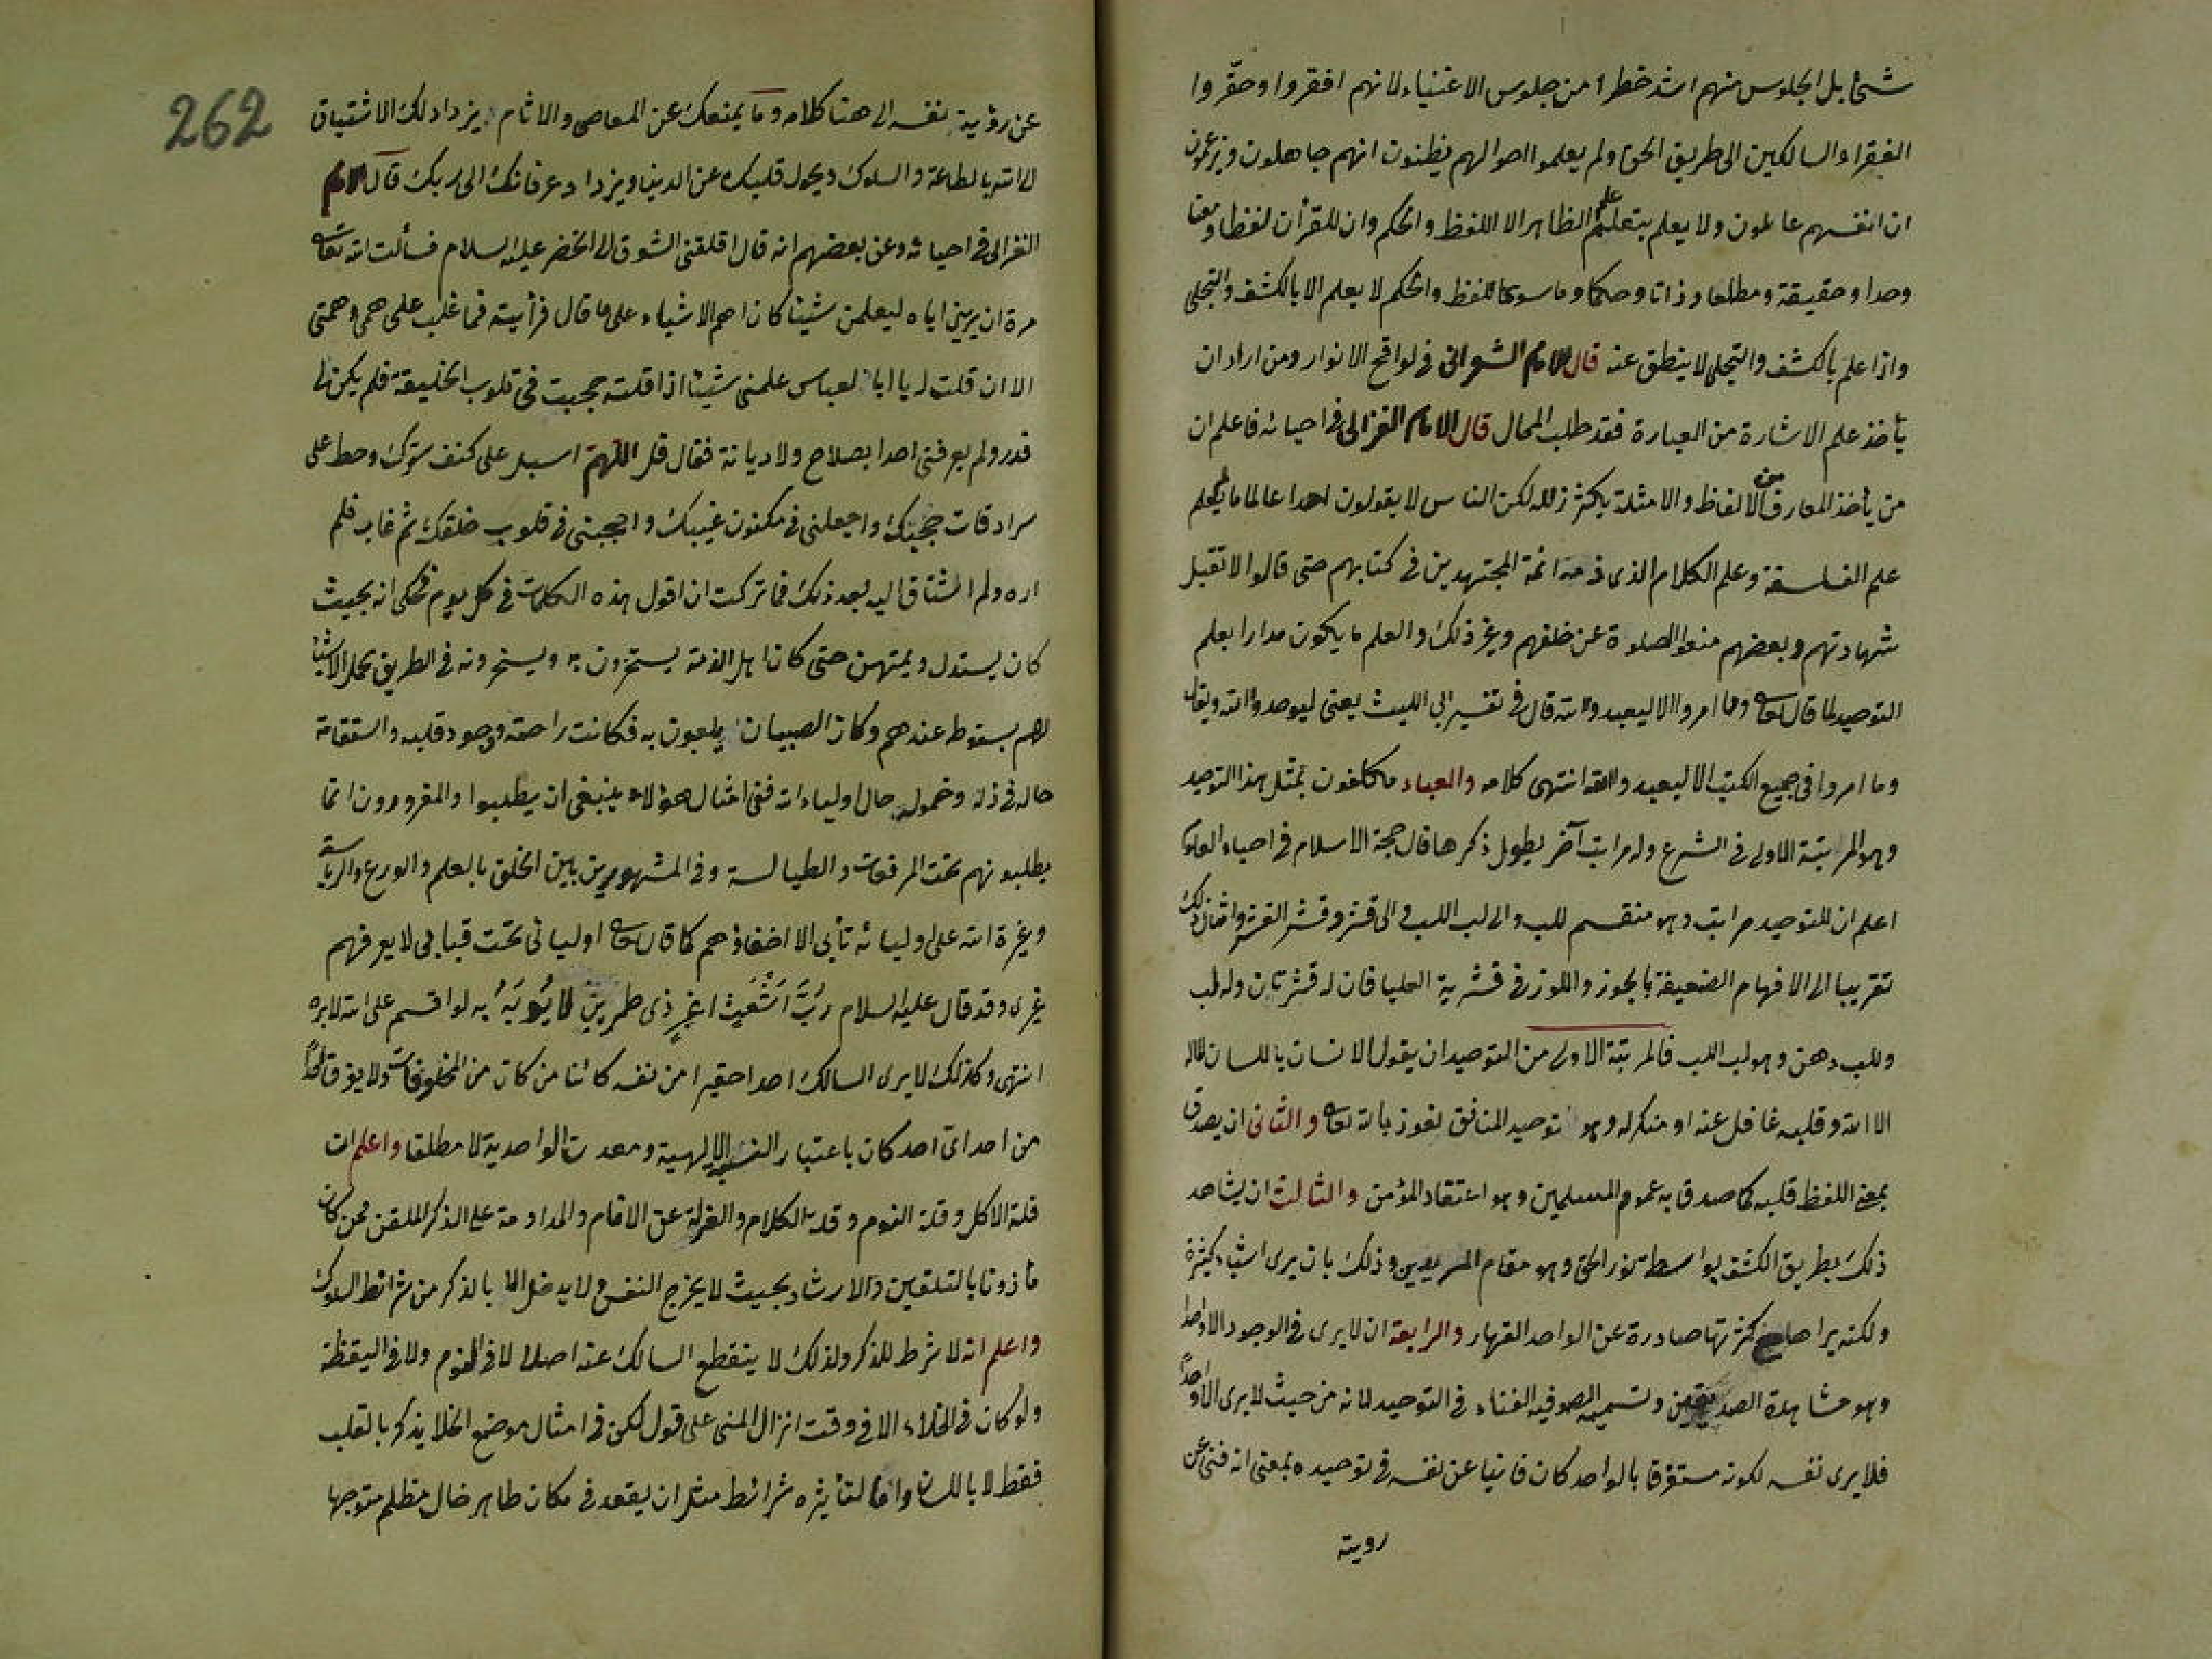 شئ بل الجلوس منهم اشد خطرا من جلوس الاغنياء لانهم افقروا وحقّروا
الفقراء والسالكين الى طريق الحق ولم يعلموا احوالهم يظنون انهم جاهلون ويزعمون
ان انفسهم عالمون ولا يعلم بتعلم علم الظاهر الا اللفظ والحكم وان للقرأن لفظا ومعنا
وحدا وحقيقة ومطلعا وذاتا وحكما وما سوى اللفظ والحكم لا يعلم الا بالكشف والتجلى
واذا علم بالكشف والتجلى لا ينطق عنه قال الامام الشعرانى فى لواقح الانوار ومن اراد ان
يأخذ علم الاشارة من العبارة فقد طلب المحال قال الامام الغزالى فى احيائه فاعلم ان
من يأخذ المعارف من الالفاظ والامثلة يكثر زلله لكن الناس لا يقولون احدا عالما ما لم يعلم
علم الفلسفة وعلم الكلام الذى ذمه ائمة المجتهدين فى كتابهم حتى قالوا لا تقبل
شهادتهم وبعضهم منعوا الصلوة عن خلفهم وغير ذلك والعلم ما يكون مدارا بعلم
التوحيد لما قال تعالى وما امروا الا ليعبدوا الله قال فى تفسير ابى الليث يعنى ليوحدوا الله ويقال
وما امروا فى جميع الكتب الا ليعبدوا الله انتهى كلامه والعباد مكلفون بمثل هذا التوحيد
وهو المرتبة الاولى فى الشرع وله مراتب آخر يطول ذكرها قال حجة الاسلام فى احياء العلوم
اعلم ان للتوحيد مراتب وهو منقسم للب والى لب اللب والى قشر وقشر القشر وامثال ذلك
تقريبا الى الافهام الضعيفة بالجوز واللوز فى قشريه العليا فان له قشرتان وله لب
وللب دهن وهو لب اللب فالمرتبة الاولى من التوحيد ان يقول الانسان باللسان لا اله
الا الله وقلبه غافل عنه او منكر له وهو توحيد المنافق نعوذ بالله تعالى والثانى ان يصدق
بمعنى اللفظ قلبه كما صدق به عموم المسلمين وهو اعتقاد المؤمن والثالث ان يشاهد
ذلك بطريق الكشف بواسطة نور الحق وهو مقام المريدين وذلك بان يرى اشياء كثيرة
ولكنه يراها مع كثرتها صادرة عن الواحد القهار والرابعة ان لا يرى فى الوجود الا واحدا
وهو مشاهدة الصديقين وتسميه الصوفيه الفناء فى التوحيد لانه من حيث لا يرى الا واحدا
فلا يرى نفسه لكونه مستغرقا بالواحد كان فانيا عن نفسه فى توحيده بمعنى انه فنى عن
رويته
262
عن رؤية نفسه الى هنا كلامه وما يمنعك عن المعاصى والاثام يزداد لك الاشتياق
الى الله بالطاعة والسلوك ويحول قلبك عن الدنيا ويزداد عرفانك الى ربك قال الامام
الغزالى فى احيائه وعن بعضهم انه قال اقلقنى الشوق الى الخضر عليه السلام فسألت الله تعالى
مرة ان يرينى اياه ليعلمنى شيئا كان اهم الاشياء على ما قال فرأيته فما غلب على همى وهمتى
الا ان قلت له يا ابا العباس علمنى شيئا اذا قلته حجبت فى قلوب الخليقة فلم يكن لى
قدر ولم يعرفنى احدا بصلاح ولا ديانة فقال قل اللهم اسبل على كنف سترك وحط على
سرادقات حجبك واجعلنى فى مكنون غيبك واحجبنى فى قلوب خلقك ثم غاب فلم
اره ولم اشتاق اليه بعد ذلك فما تركت ان اقول هذه الكلمات فى كل يوم فحكى انه بحيث
كان يستذل ويمتهن حتى كان اهل الذمة يستخرون به ويسخرونه فى الطريق بحمل الاشياء
لهم بسقوطه عندهم وكان الصبيان يلعبون به فكانت راحته وجود قلبه واستقامة
حاله فى ذله وخموله حال اولياء الله ففى امثال هؤلاء ينبغى ان يطلبوا والمغرورون انما
يطلبونهم تحت المرقعات والطيالسة وفى المشهورين بين الخلق بالعلم والورع والرياسة
وغيرة الله على اوليائه تأبى الا اخفاؤهم كما قال تعالى اوليائى تحت قبابى لا يعرفهم
غيرى وقد قال عليه السلام رُبَّ اَشْعَثَ اغبرٍ ذى طمرينِ لا يُؤبَهُ به لو اقسم على الله لابره
انتهى وكذلك لا يرى السالك احدا حقيرا من نفسه كائنا من كان من المخلوقات ولا يفرق
من احد اى احد كان باعتبار النسب الالهية ومعدن الواحدية لا مطلقا واعلم ان
قلة الاكل وقلة النوم وقلة الكلام والعزلة عن الانام والمداومة على الذكر الملقن ممن كان
مأذونا بالتلقين والارشاد بحيث لا يخرج النفس ولا يدخل الا بالذكر من شرائط السلوك
واعلم انه لا شرط للذكر ولذلك لا ينقطع السالك عنه اصلا لا فى النوم ولا فى اليقظة
ولو كان فى الخلاء الا فى وقت انزال المنى على قول لكن فى امثال موضع الخلا يذكر بالقلب
فقط لا باللسان واما لتأثيره شرائط مثل ان يقعد فى مكان طاهر خال مظلم متوجها